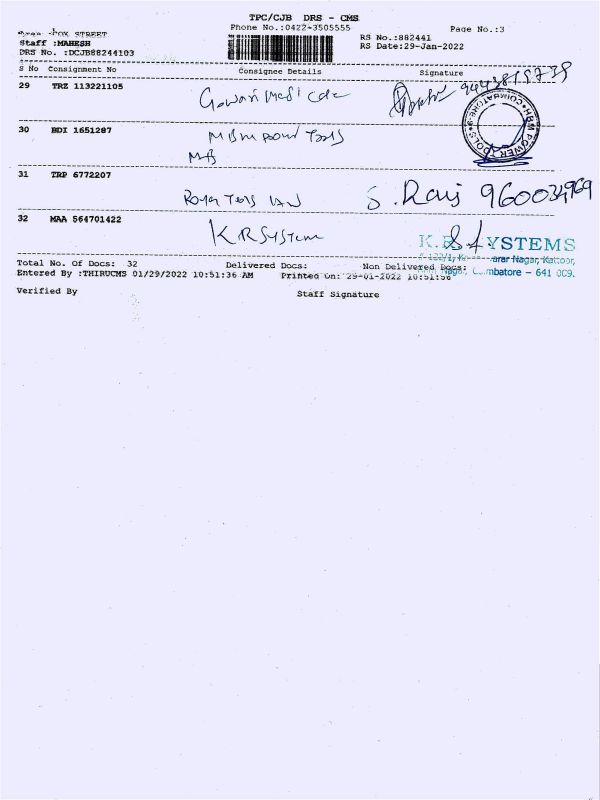 TPC/CJB DRS - CMS
Phone No.:0422-3505555 Page No.:3
FOX STREET
Staff :MAHESH RS No.:882441
DRS No. :DCJB88244103 RS Date:29-Jan-2022
S No Consignment No Consignee Details Signature
29 TRZ 113221105 Gowari Medical
30 BDI 1651287 MBM POWER TOOLS
HBM POWER TOOLS COIMBATORE-9
MB
31 TRP 6772207
Royal Tools S. Raij 960034969
32 MAA 564701422
KR SYSTEM K. SYSTEMS
arar Nagar, Kattoor,
Nagar, mbatore - 641 009.
Total No. Of Docs: 32 Delivered Docs: Non Delivered Docs:
Entered By :THIRUCMS 01/29/2022 10:51:36 AM Printed On: 29-01-2022 10:51:36
Verified By Staff Signature